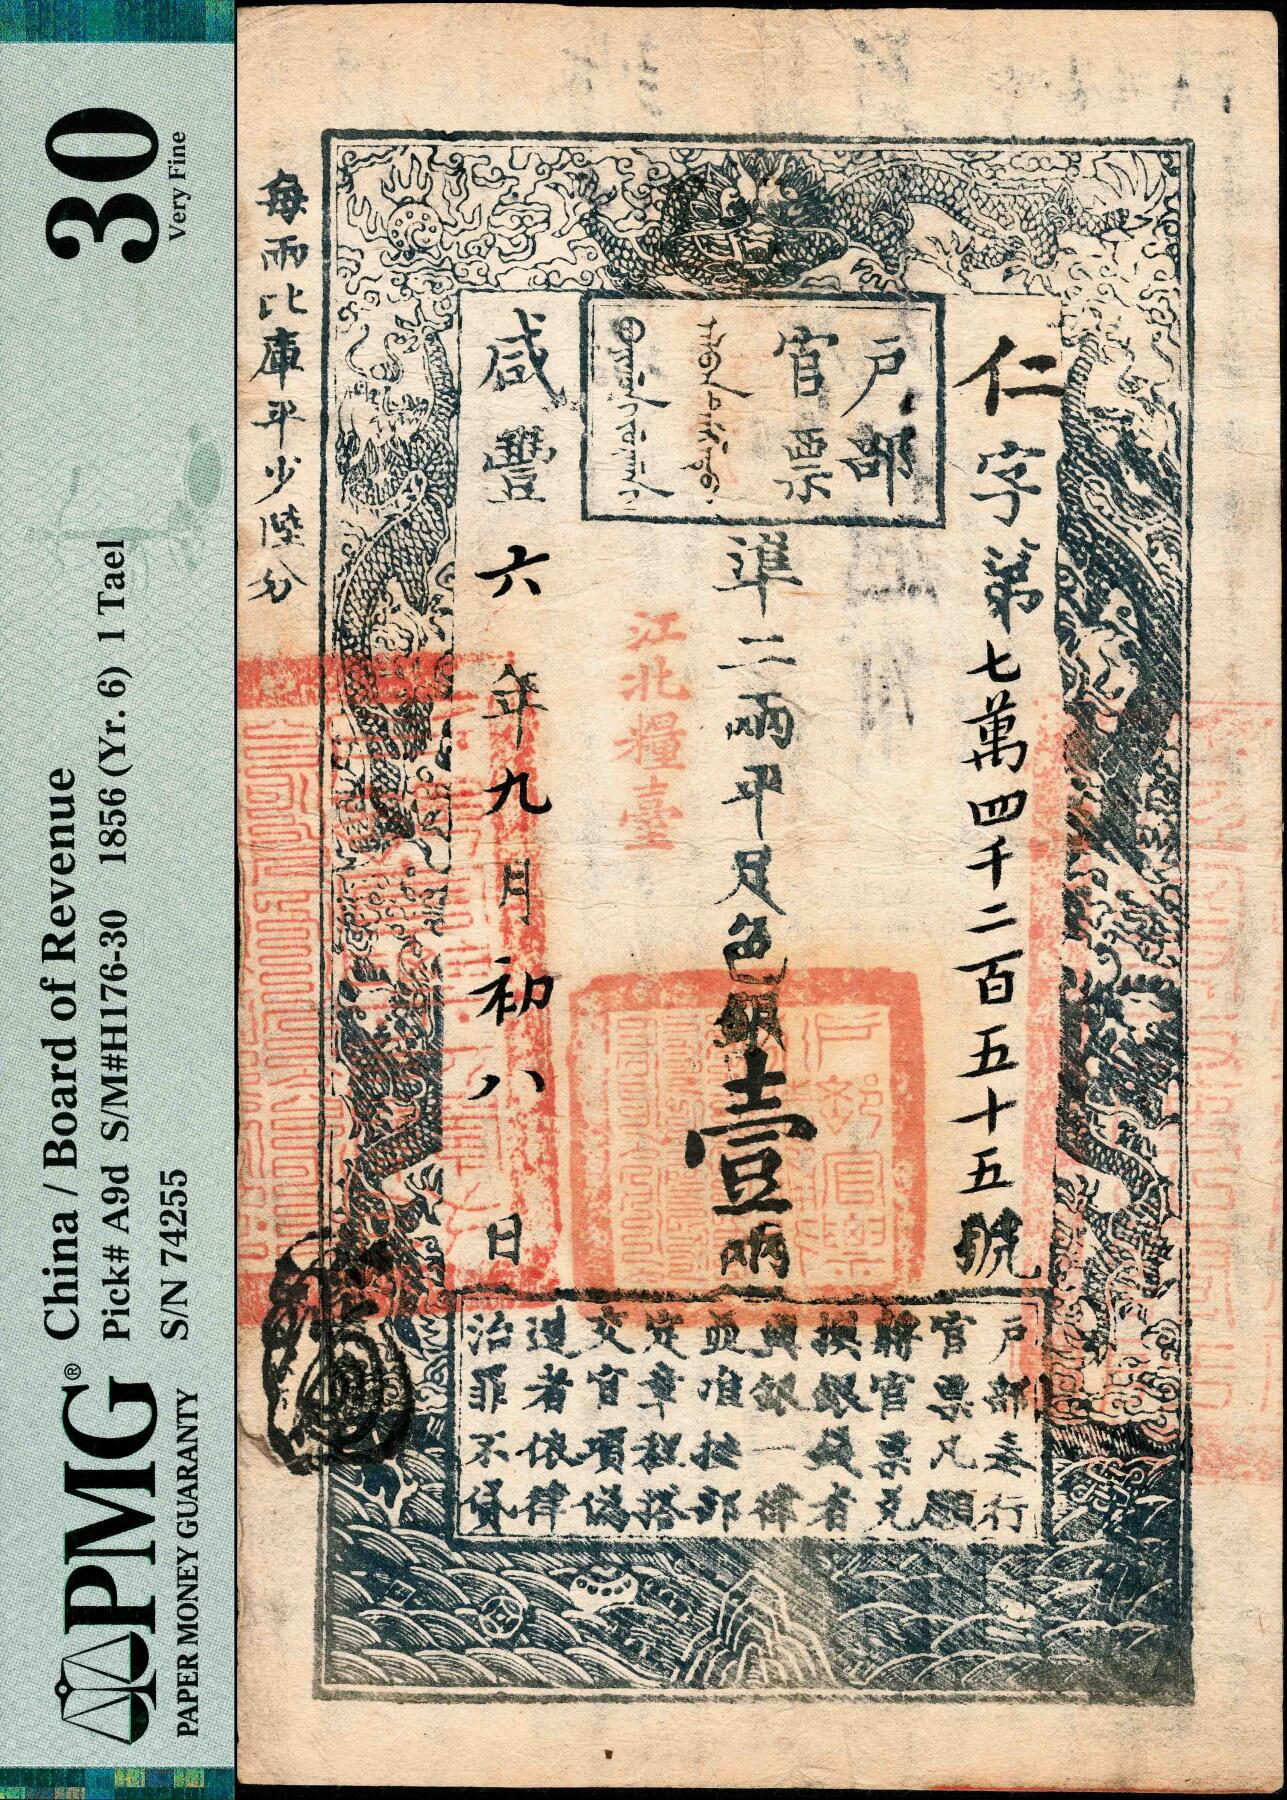 PMG®
PAPER MONEY GUARANTY
China / Board of Revenue
Pick# A9d S/M#H176-30 1856 (Yr. 6) 1 Tael
S/N 74255
30
Very Fine
戶部
官票
仁字第七萬四千二百五十五號
準二兩平足色銀壹兩
江北糧臺
咸豐六年九月初八日
每兩比庫平少陸分
戶部奏行
官票凡願
將官票兌
換銀錢者
與銀一律
並准按部
定章程搭
交官項偽
造者依律
治罪不貸